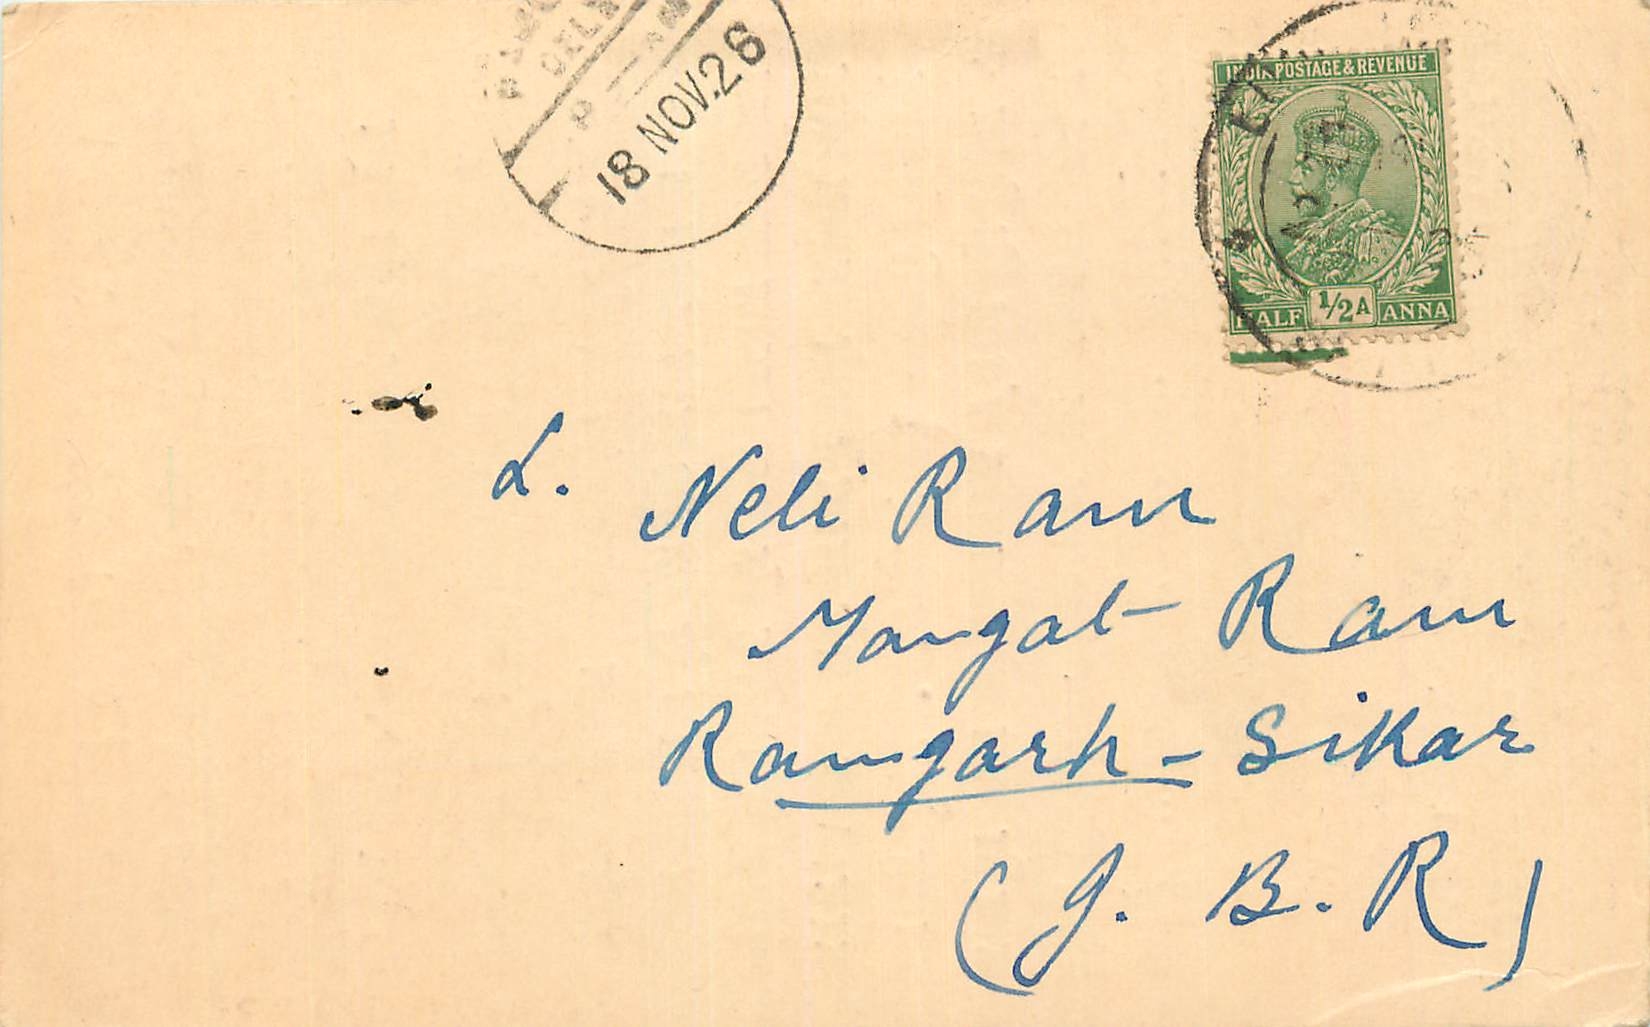 18 NOV.26
INDIA POSTAGE & REVENUE
HALF 1/2A ANNA
L. Neli Ram
Mangat Ram
Ramgarh - Sikar
(J. B. R)